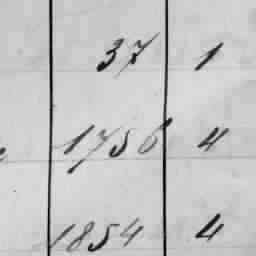 37 1
1756 4
1854 4